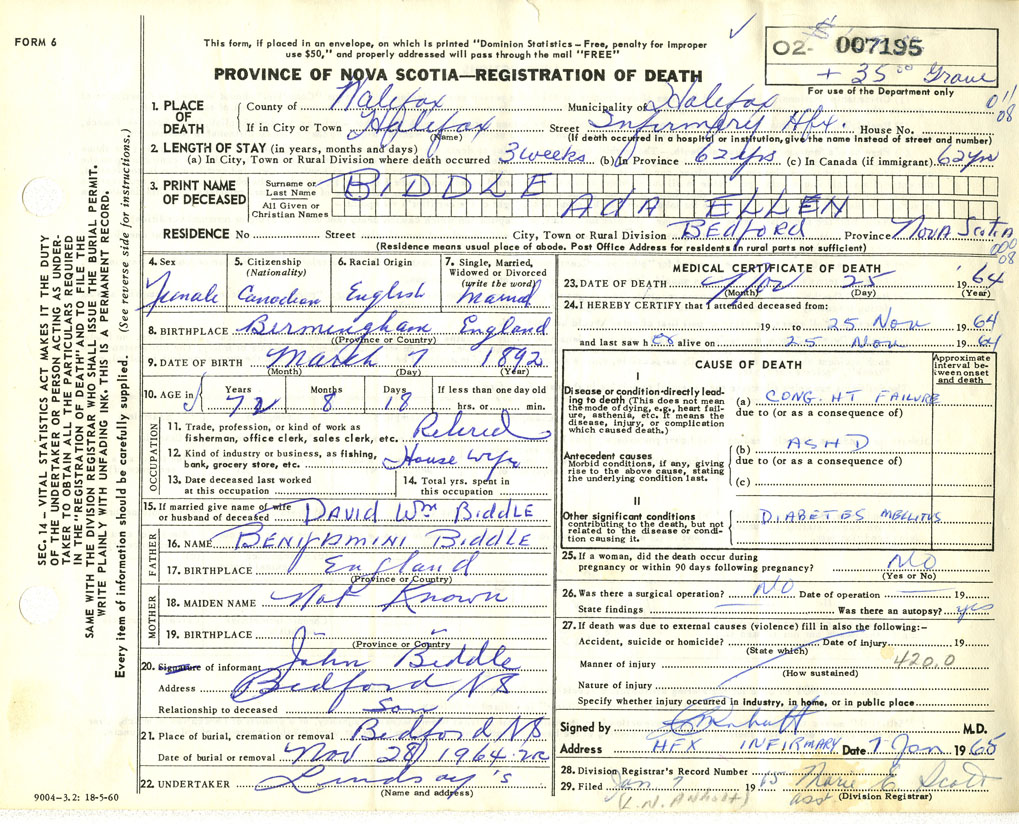 FORM 6
This form, if placed in an envelope, on which is printed "Dominion Statistics – Free, penalty for improper
use $50," and properly addressed will pass through the mail "FREE"
02- 007195
+ 35.00 Grave
For use of the Department only
PROVINCE OF NOVA SCOTIA—REGISTRATION OF DEATH
1. PLACE OF DEATH
County of Halifax Municipality of Halifax
011
08
If in City or Town Halifax Street Infirmary Hfx. House No.
(Name) (If death occurred in a hospital or institution, give the name instead of street and number)
2. LENGTH OF STAY (in years, months and days)
(a) In City, Town or Rural Division where death occurred 3 weeks (b) In Province 62 yrs (c) In Canada (if immigrant) 62 yrs
3. PRINT NAME OF DECEASED
Surname or Last Name BIDDLE
All Given or Christian Names ADA ELLEN
RESIDENCE No Street City, Town or Rural Division BEDFORD Province NOVA SCOTIA
(Residence means usual place of abode. Post Office Address for residents in rural parts not sufficient)
000
08
SEC. 14 – VITAL STATISTICS ACT MAKES IT THE DUTY
OF THE UNDERTAKER OR PERSON ACTING AS UNDER-
TAKER TO OBTAIN ALL THE PARTICULARS REQUIRED
IN THE "REGISTRATION OF DEATH" AND TO FILE THE
SAME WITH THE DIVISION REGISTRAR WHO SHALL ISSUE THE BURIAL PERMIT.
WRITE PLAINLY WITH UNFADING INK. THIS IS A PERMANENT RECORD.
Every item of information should be carefully supplied. (See reverse side for instructions.)
4. Sex
Female
5. Citizenship
(Nationality)
Canadian
6. Racial Origin
English
7. Single, Married,
Widowed or Divorced
(write the word)
Married
8. BIRTHPLACE Birmingham England
(Province or Country)
9. DATE OF BIRTH March 7 1892
(Month) (Day) (Year)
10. AGE in
Years Months Days If less than one day old
72 8 18 hrs. or min.
OCCUPATION
11. Trade, profession, or kind of work as
fisherman, office clerk, sales clerk, etc. Retired
12. Kind of industry or business, as fishing,
bank, grocery store, etc. House Wife
13. Date deceased last worked
at this occupation
14. Total yrs. spent in
this occupation
15. If married give name of wife
or husband of deceased DAVID Wm BIDDLE
FATHER
16. NAME BENJAMINI BIDDLE
17. BIRTHPLACE England
(Province or Country)
MOTHER
18. MAIDEN NAME Not Known
19. BIRTHPLACE
(Province or Country)
20. Signature of informant John Biddle
Address Bedford NS
Relationship to deceased Son
21. Place of burial, cremation or removal Bedford NS
Date of burial or removal Nov 28/1964
22. UNDERTAKER Lindsay's
(Name and address)
9004–3.2: 18-5-60
MEDICAL CERTIFICATE OF DEATH
23. DATE OF DEATH Nov 25 1964
(Month) (Day) (Year)
24. I HEREBY CERTIFY that I attended deceased from:
19 to 25 Nov 1964
and last saw h er alive on 25 Nov 1964
CAUSE OF DEATH
Approximate
interval be-
tween onset
and death
I
Disease or condition directly lead-
ing to death (This does not mean
the mode of dying, e.g., heart failure,
asthenia, etc. It means the
disease, injury, or complication
which caused death.)
(a) CONG. HT FAILURE
due to (or as a consequence of)
Antecedent causes
Morbid conditions, if any, giving
rise to the above cause, stating
the underlying condition last.
(b) ASHD
due to (or as a consequence of)
(c)
II
Other significant conditions
contributing to the death, but not
related to the disease or condi-
tion causing it.
DIABETES MELLITUS
25. If a woman, did the death occur during
pregnancy or within 90 days following pregnancy? NO
(Yes or No)
26. Was there a surgical operation? NO Date of operation 19
State findings Was there an autopsy? yes
27. If death was due to external causes (violence) fill in also the following:–
Accident, suicide or homicide? Date of injury 19
(State which)
Manner of injury 420.0
(How sustained)
Nature of injury
Specify whether injury occurred in industry, in home, or in public place
Signed by M.D.
Address HFX INFIRMARY Date 7 Jan 1965
28. Division Registrar's Record Number
29. Filed Jan 7 1965 Marie C. Scott
(L.N. Anholt) asst (Division Registrar)